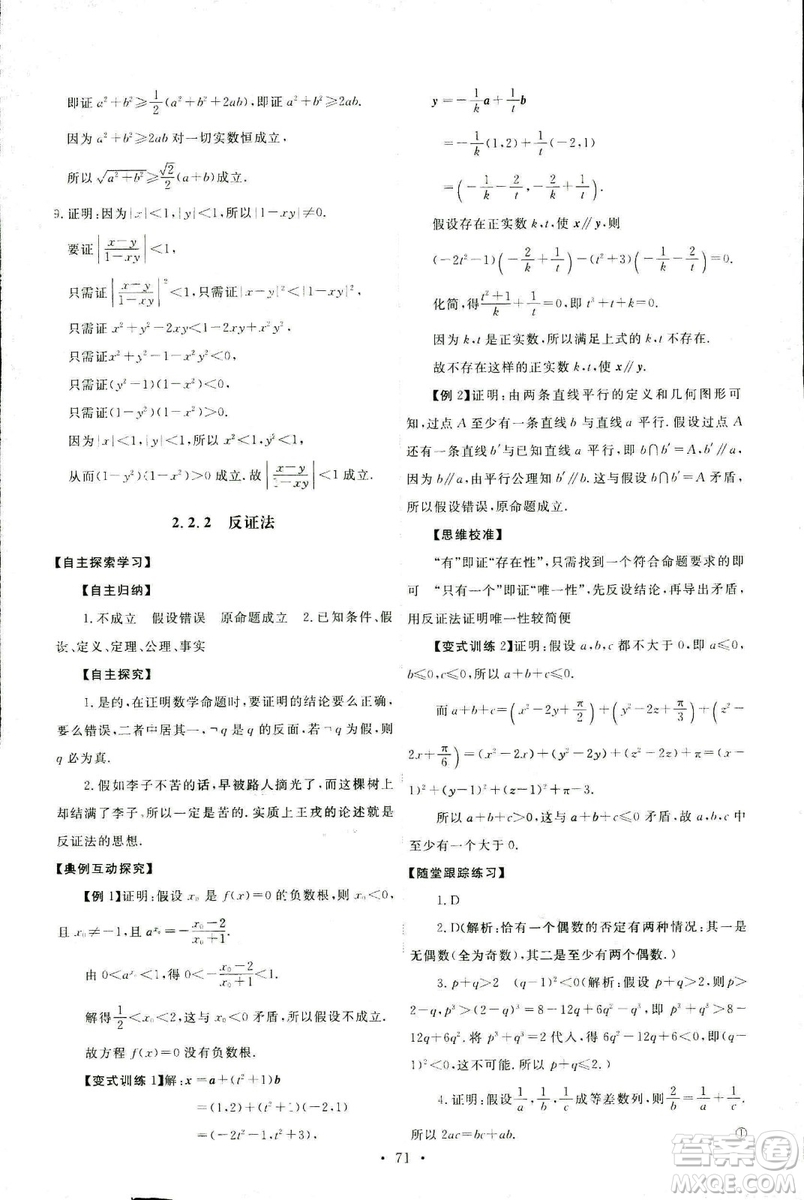 即证a²+b²⩾1/2(a²+b²+2ab),即证a²+b²⩾2ab.
因为a²+b²⩾2ab对一切实数恒成立.
所以√(a²+b²)⩾√2/2(a+b)成立.
9.证明:因为|x|<1,|y|<1,所以|1-xy|≠0.
要证|(x-y)/(1-xy)|<1,
只需证|(x-y)/(1-xy)|²<1,只需证|x-y|²<|1-xy|²,
只需证x²+y²-2xy<1-2xy+x²y²,
只需证x²+y²-1-x²y²<0,
只需证(y²-1)(1-x²)<0,
只需证(1-y²)(1-x²)>0.
因为|x|<1,|y|<1,所以x²<1,y²<1,
从而(1-y²)(1-x²)>0成立.故|(x-y)/(1-xy)|<1成立.
2.2.2 反证法
【自主探索学习】
【自主归纳】
1.不成立 假设错误 原命题成立 2.已知条件、假
设、定义、定理、公理、事实
【自主探究】
1.是的,在证明数学命题时,要证明的结论要么正确,
要么错误,二者中居其一,¬q是q的反面,若¬q为假,则
q必为真.
2.假如李子不苦的话,早被路人摘光了,而这棵树上
却结满了李子,所以一定是苦的.实质上王戎的论述就是
反证法的思想.
【典例互动探究】
【例1】证明:假设x₀是f(x)=0的负数根,则x₀<0,
且x₀≠-1,且a^x₀=-(x₀-2)/(x₀+1),
由0<a^x₀<1,得0<-(x₀-2)/(x₀+1)<1,
解得1/2<x₀<2,这与x₀<0矛盾,所以假设不成立,
故方程f(x)=0没有负数根.
【变式训练1】解:x=a+(t²+1)b
=(1,2)+(t²+1)(-2,1)
=(-2t²-1,t²+3),
y=-1/k a+1/t b
=-1/k(1,2)+1/t(-2,1)
=(-1/k-2/t,-2/k+1/t).
假设存在正实数k,t,使x∥y,则
(-2t²-1)(-2/k+1/t)-(t²+3)(-1/k-2/t)=0.
化简,得(t²+1)/k+1/t=0,即t³+t+k=0.
因为k,t是正实数,所以满足上式的k,t不存在.
故不存在这样的正实数k,t,使x∥y.
【例2】证明:由两条直线平行的定义和几何图形可
知,过点A至少有一条直线b与直线a平行.假设过点A
还有一条直线b′与已知直线a平行,即b∩b′=A,b′∥a,
因为b∥a,由平行公理知b′∥b.这与假设b∩b′=A矛盾,
所以假设错误,原命题成立.
【思维校准】
“有”即证“存在性”,只需找到一个符合命题要求的即
可 “只有一个”即证“唯一性”,先反设结论,再推出矛盾,
用反证法证明唯一性较简便
【变式训练2】证明:假设a,b,c都不大于0,即a⩽0,
b⩽0,c⩽0,所以a+b+c⩽0.
而a+b+c=(x²-2y+π/2)+(y²-2z+π/3)+(z²-
2x+π/6)=(x²-2x)+(y²-2y)+(z²-2z)+π=(x-
1)²+(y-1)²+(z-1)²+π-3.
所以a+b+c>0,这与a+b+c⩽0矛盾,故a,b,c中
至少有一个大于0.
【随堂跟踪练习】
1.D
2.D(解析:恰有一个偶数的否定有两种情况:其一是
无偶数(全为奇数),其二是至少有两个偶数.)
3.p+q>2 (q-1)²<0(解析:假设p+q>2,则p>
2-q,p³>(2-q)³=8-12q+6q²-q³,即p³+q³>8-
12q+6q².将p³+q³=2代入,得6q²-12q+6<0,即(q-
1)²<0.这不可能.所以p+q⩽2.)
4.证明:假设1/a,1/b,1/c成等差数列,则2/b=1/a+1/c.
所以2ac=bc+ab. ①
• 71 •
答案圈
MXQE.COM